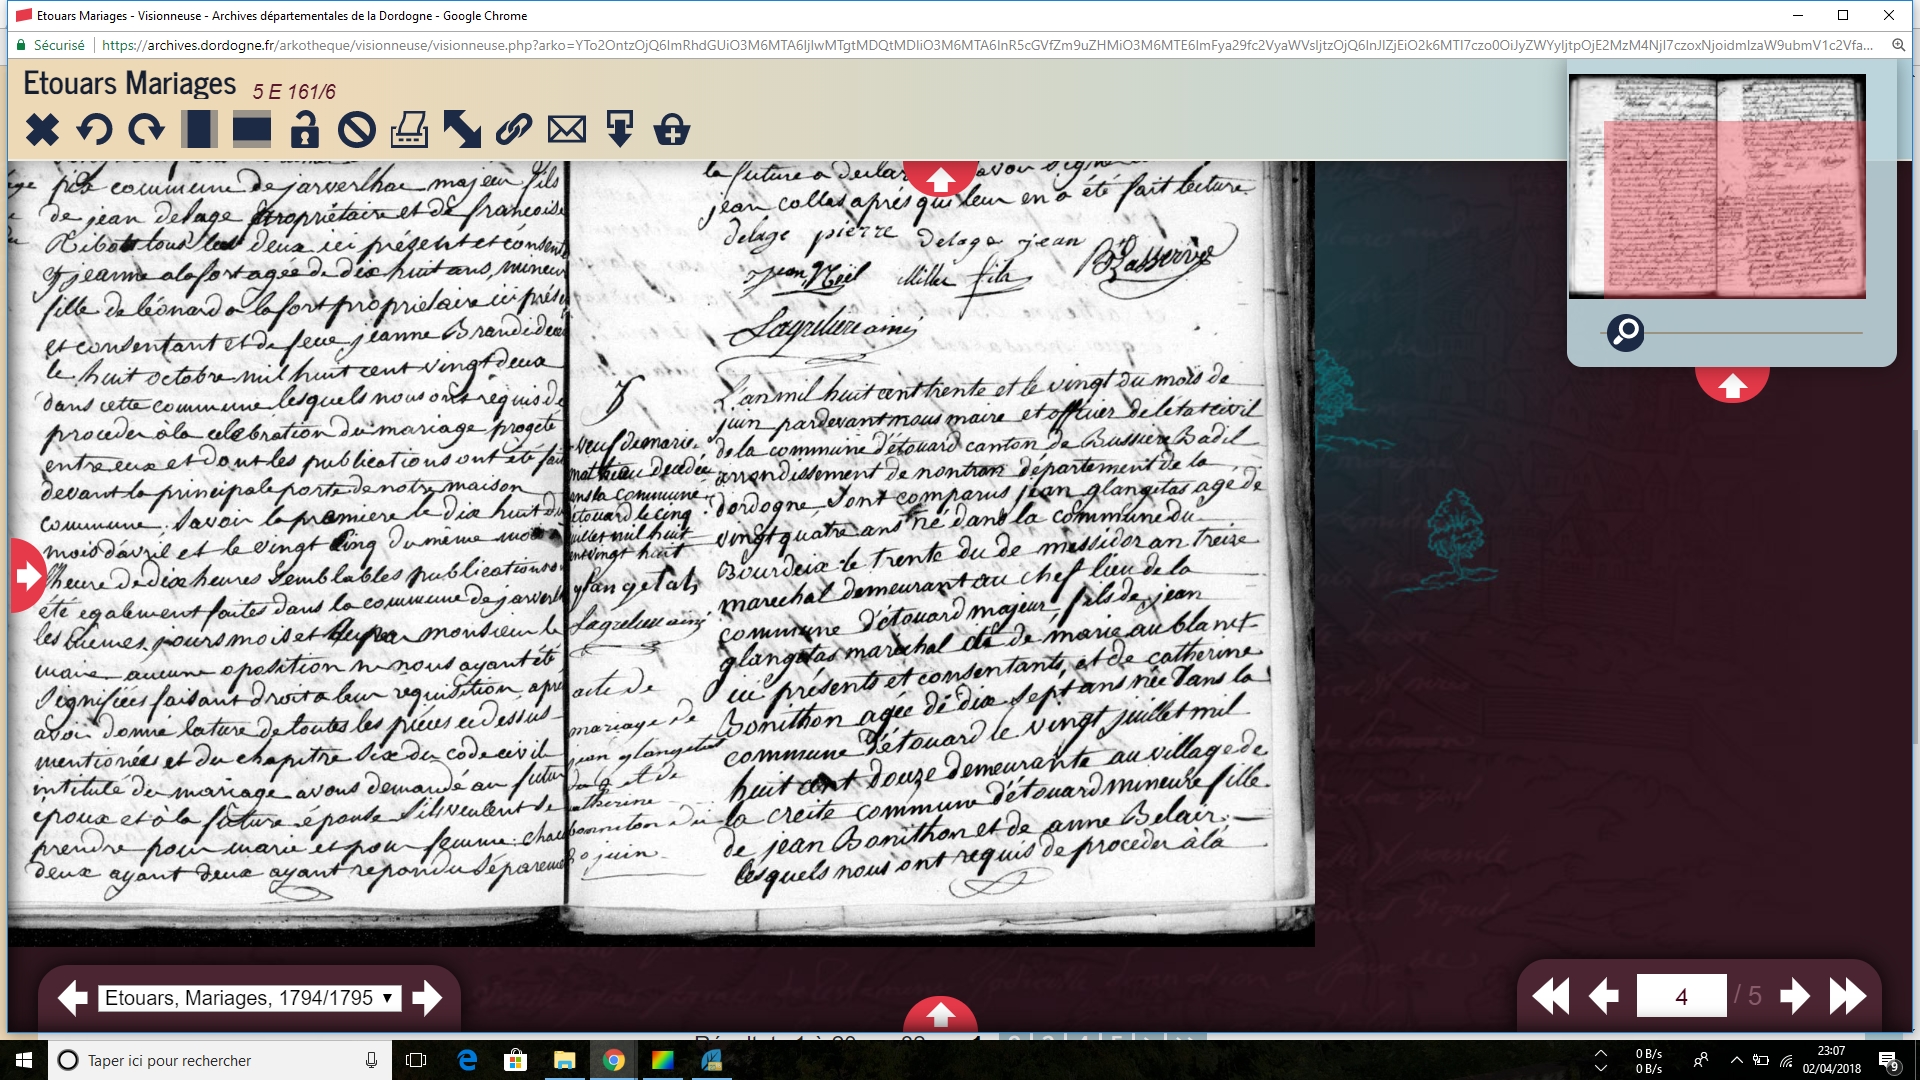 Etouars Mariages - Visionneuse - Archives départementales de la Dordogne - Google Chrome
Sécurisé
Etouars Mariages 5 E 161/6
pice commune de javerlhac majeur fils
de jean delage propriétaire et de francoise
Ribot tous les deux ici présent et consent
jeanne alafort agée de dix huit ans, mineur
fille de léonard alafort propriétaire ici prés
et consentant et de feue jeanne Brandi
le huit octobre mil huit cent vingt deux
dans cette commune lesquels nous ont réquis de
proceder à la celebration du mariage progeté
entre eux et dont les publications ont été fai
devant la principale porte de notre maison
commune. Savoir la premiere le dix huit du
mois d'avril et le vingt cinq du même mois
l'heure de dix heures Semblables publications
été egalement faites dans la commune de javerlh
les mêmes jours mois et monsieur le
maire aucune oposition ne nous ayant été
Signifiées faisant droit a leur réquisition aprés
avoir donné lature de toutes les piéces ci dessus
mentionées et du chapitre Six du code civil
intitulé du mariage avons demandé au futur
époux et à la future épouse S'ils veulent se
prendre pour marie et pour femme: chac
deux ayant deux ayant repondu Séparemen
la future a declar avoir Signer
jean colles aprés qu leur en a été fait lecture
delage pierre delage jean
jean Noël fils B Lasserve
Lagreliere ainé
veuf de marie
mathieu decedée
ans la commune
étouard le cinq
juillet mil huit
ent vingt huit
glangetas
Lagreliere ainé
acte de
mariage de
jean glangetas
et de
atherine
bonniton du
20 juin
L'an mil huit cent trente et le vingt du mois de
juin pardevant nous maire et officier de l'état civil
de la commune d'étouard canton de Bussiere Badil
arrondissement de nontron département de la
dordogne, Sont comparus jean glangetas agé de
vingt quatre ans né dans la commune du
Bourdeix le trente du de messidor an treize
marechal demeurant au chef lieu de la
commune d'étouard majeur, fils de jean
glangetas maréchal de de marie aublant
ici présents et consentants, et de catherine
Bonithon agée de dix Sept ans née dans la
commune d'étouard le vingt juillet mil
huit cent douze demeurante au village de
la creite commune d'étouard mineure fille
de jean Bonithon et de anne Belair.
lesquels nous ont requis de proceder à la
Etouars, Mariages, 1794/1795
4 / 5
Taper ici pour rechercher
0 B/s
0 B/s
23:07
02/04/2018
9